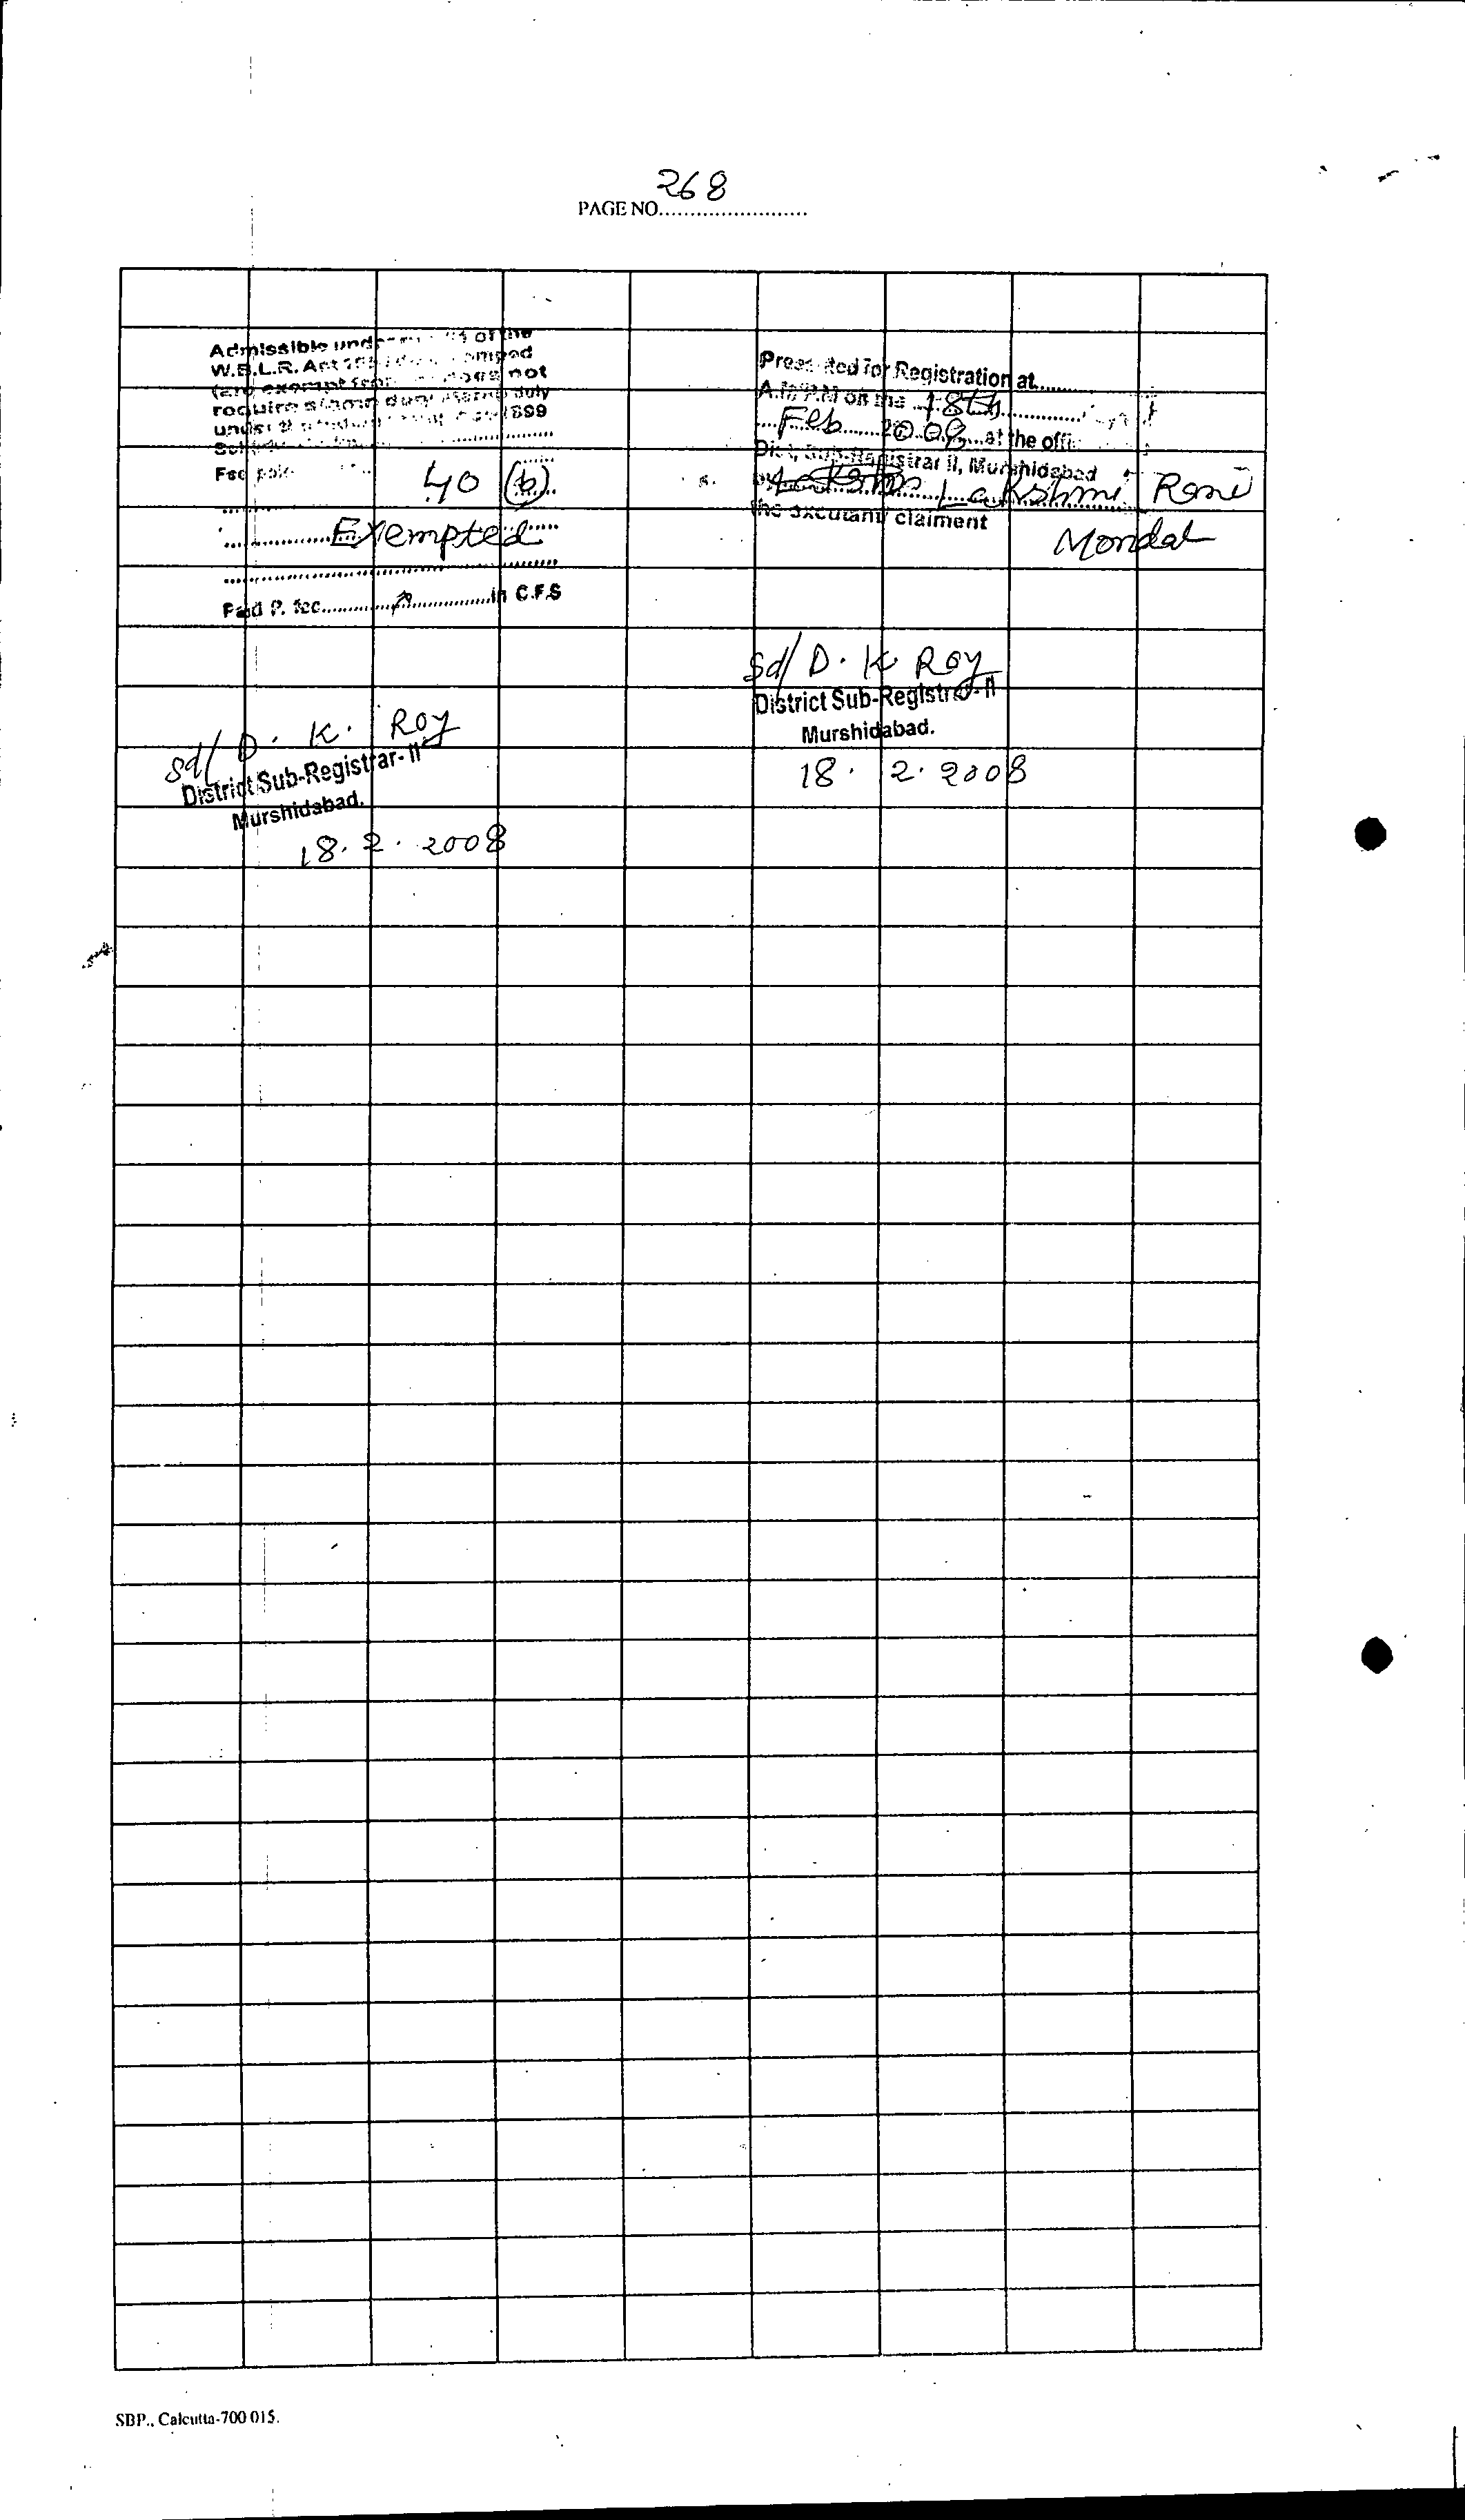 268
PAGE NO.........................
Admissible of the
W.B.L.R. Act
not
require stamp duty
under 1899
Fee
40 (b)
Exempted
Paid P. fee..............in C.F.S
Sd/ D. K. Roy
District Sub-Registrar-II
Murshidabad.
18. 2. 2008
Presented for Registration at.......
A.M/P.M on the 18th
Feb 2008 at the office
Dist, Sub-Registrar II, Murshidabad
by Lakshmi Rani
Mondal
the excutant/ claiment
Sd/ D. K Roy
District Sub-Registrar-II
Murshidabad.
18. 2. 2008
SBP., Calcutta-700 015.